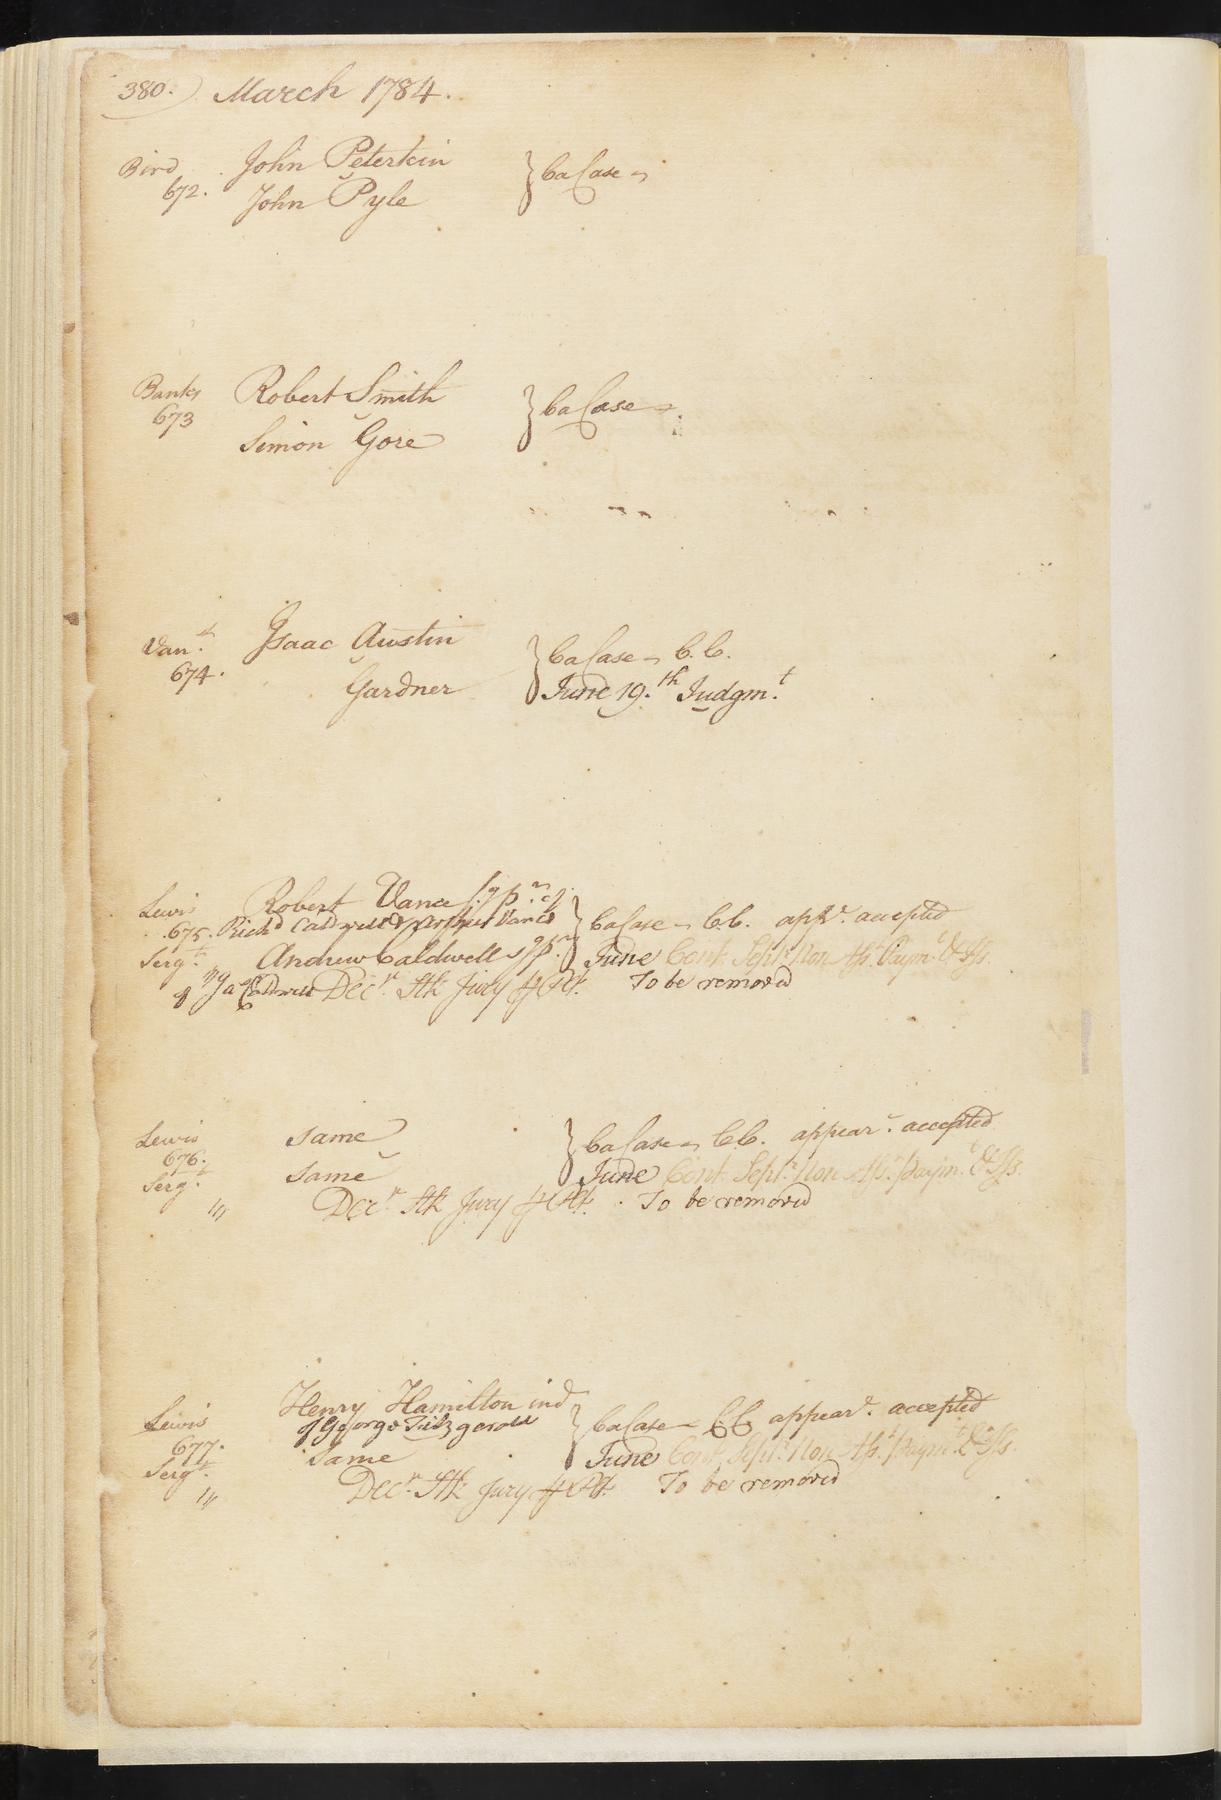 380. March 1784.
Bird John Peterkin } Ca Case
672. John Pyle
Banks Robert Smith } Ca Case
673 Simon Gore
Van.dt Isaac Austin } Ca Case C.C.
674. Gardner June 19.th Judgm.t
Lewis Robert Vance
675. Rich.d Caldwell & Arthur Vance } Ca Case C.C. appr. accepted
Serg.t Andrew Caldwell June Cont. Sept.r Non Ass.t Paym.t & Iss.
of Ja Caldwell Dec.r Stk Jury To be removed
Lewis same } Ca Case C.C. appear.e accepted
676. same June Cont. Sept.r Non Ass.t paym.t & Iss.
Serg.t
Dec.r Stk Jury To be removed
Lewis Henry Hamilton ind
of George Fitzgerald } Ca Case C.C. appear.e accepted
677. same June Cont. Sept.r Non Ass.t paym.t & Iss.
Serg.t
Dec.r Stk Jury To be removed